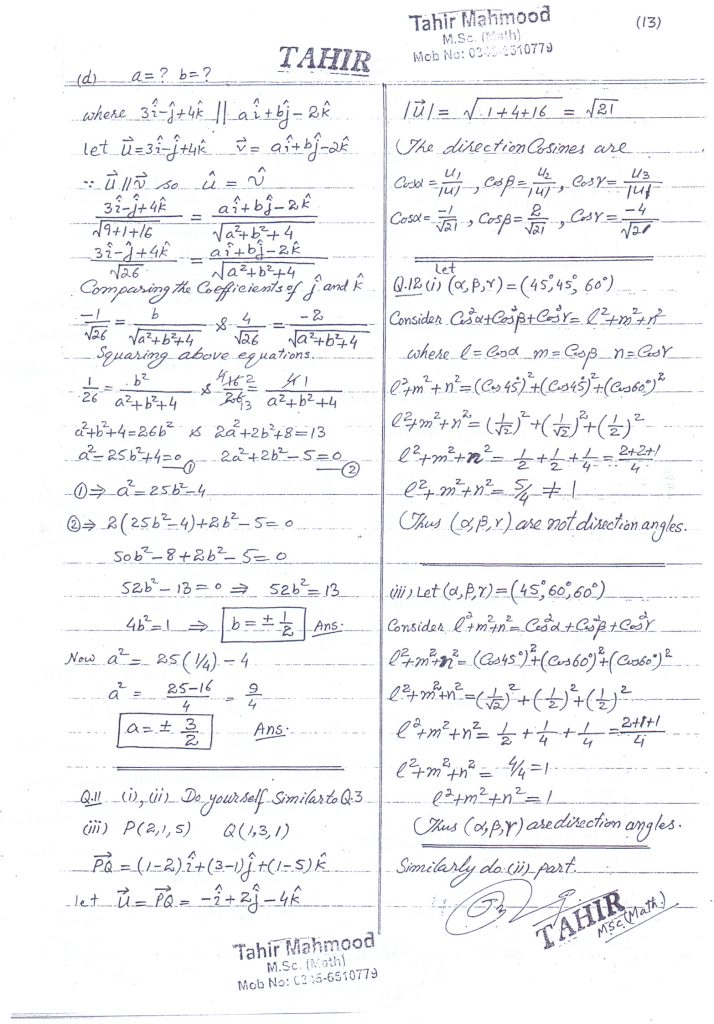 Tahir Mahmood
M.Sc. (Math)
Mob No: 0345-6510779
(13)
TAHIR
(d) a=? b=?
where 3î-ĵ+4k̂ || aî+bĵ-2k̂
let u⃗=3î-ĵ+4k̂ v⃗= aî+bĵ-2k̂
∵ u⃗ || v⃗ so û = v̂
(3î-ĵ+4k̂)/√(9+1+16) = (aî+bĵ-2k̂)/√(a²+b²+4)
(3î-ĵ+4k̂)/√26 = (aî+bĵ-2k̂)/√(a²+b²+4)
Comparing the Coefficients of ĵ and k̂
-1/√26 = b/√(a²+b²+4) & 4/√26 = -2/√(a²+b²+4)
Squaring above equations.
1/26 = b²/(a²+b²+4) & 16/26 = 4/(a²+b²+4)
a²+b²+4=26b² & 2a²+2b²+8=13
a²-25b²+4=0 ① 2a²+2b²-5=0 ②
①⇒ a²=25b²-4
②⇒ 2(25b²-4)+2b²-5=0
50b²-8+2b²-5=0
52b²-13=0 ⇒ 52b²=13
4b²=1 ⇒ b=±1/2 Ans.
Now a²= 25(1/4)-4
a² = (25-16)/4 = 9/4
a=±3/2 Ans.
Q.11 (i),(ii) Do yourself Similar to Q.3
(iii) P(2,1,5) Q(1,3,1)
PQ⃗ = (1-2)î+(3-1)ĵ+(1-5)k̂
let u⃗ = PQ⃗ = -î+2ĵ-4k̂
Tahir Mahmood
M.Sc. (Math)
Mob No: 0345-6510779
|u⃗| = √(1+4+16) = √21
The direction Cosines are
Cosα = u₁/|u|, Cosβ = u₂/|u|, Cosγ = u₃/|u|
Cosα = -1/√21, Cosβ = 2/√21, Cosγ = -4/√21
Q.12 (i) Let (α,β,γ)=(45°,45°,60°)
Consider Cos²α+Cos²β+Cos²γ= l²+m²+n²
where l=Cosα m=Cosβ n=Cosγ
l²+m²+n²=(Cos45°)²+(Cos45°)²+(Cos60°)²
l²+m²+n²= (1/√2)²+(1/√2)²+(1/2)²
l²+m²+n²= 1/2+1/2+1/4 = (2+2+1)/4
l²+m²+n²= 5/4 ≠ 1
Thus (α,β,γ) are not direction angles.
(iii) Let (α,β,γ)=(45°,60°,60°)
Consider l²+m²+n²= Cos²α+Cos²β+Cos²γ
l²+m²+n²= (Cos45°)²+(Cos60°)²+(Cos60°)²
l²+m²+n²=(1/√2)²+(1/2)²+(1/2)²
l²+m²+n²= 1/2+1/4+1/4 = (2+1+1)/4
l²+m²+n²= 4/4=1
l²+m²+n²=1
Thus (α,β,γ) are direction angles.
Similarly do (ii) part.
TAHIR
MSC.(Math.)